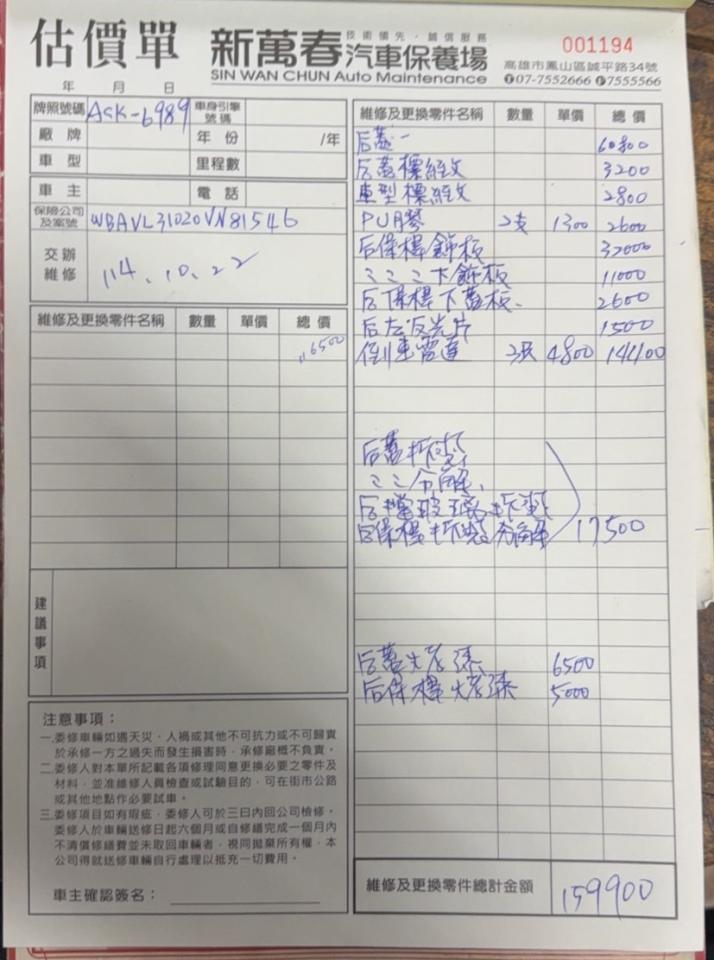 估價單
新萬春 技術領先・誠信服務
汽車保養場
SIN WAN CHUN Auto Maintenance
001194
高雄市鳳山區誠平路34號
07-7552666 7555566
年 月 日
牌照號碼 ASK-6989 車身引擎號碼
廠牌 年份 /年
車型 里程數
車主 電話
保險公司及案號 WBAVL31020VN81546
交辦維修 114.10.22
維修及更換零件名稱 數量 單價 總價
116500
建議事項
注意事項：
一.委修車輛如遇天災，人禍或其他不可抗力或不可歸責
於承修一方之過失而發生損害時，承修廠概不負責。
二.委修人對本單所記載各項修理同意更換必要之零件及
材料，並准維修人員檢查或試驗目的，可在街市公路
或其他地點作必要試車。
三.委修項目如有瑕疵，委修人可於三日內回公司檢修。
委修人於車輛送修日起六個月或自修繕完成一個月內
不清償修繕費並未取回車輛者，視同拋棄所有權，本
公司得就送修車輛自行處理以抵充一切費用。
車主確認簽名：
維修及更換零件名稱 數量 單價 總價
后蓋 60800
后蓋標 3200
車型標 2800
PU膠 2支 1300 2600
后保桿飾板 32000
〃〃〃下飾板 11000
后保桿下蓋板 2600
后左反光片 1500
倒車雷達 3只 4800 14400
后蓋拆
〃〃分解
后擋玻璃拆裝
后保桿拆裝分解 17500
后蓋烤漆 6500
后保桿烤漆 5000
維修及更換零件總計金額 159900